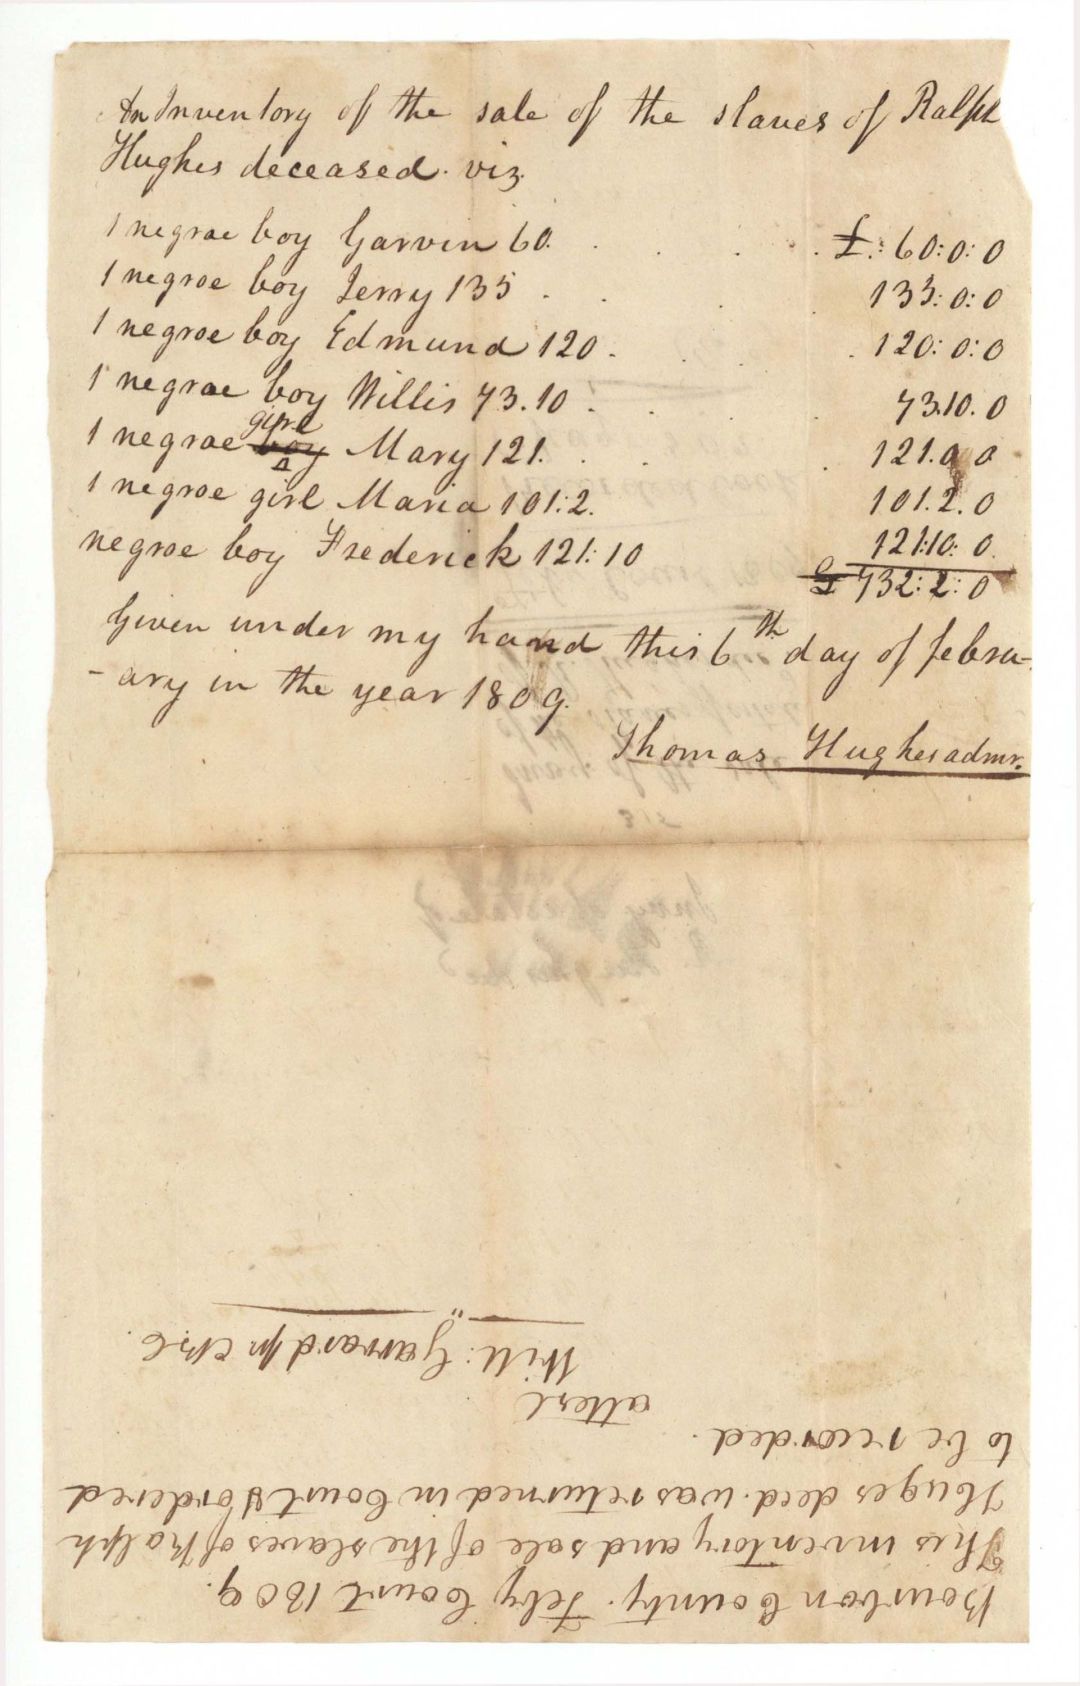 An Inventory of the sale of the slaves of Ralph
Hughes deceased. viz.
1 negroe boy Garvin 60. . . . . £.: 60:0:0
1 negroe boy Jerry 135 . . . 135:0:0
1 negroe boy Edmund 120 . . . . 120:0:0
1 negroe boy Willis 73.10 . . . . 73.10.0
1 negroe boy girl Mary 121. . . . 121.0.0
1 negroe girl Maria 101:2. 101.2.0
negroe boy Frederick 121:10 121:10:0.
£ 732:2:0
Given under my hand this 6th day of febru-
-ary in the year 1809.
Thomas Hughes admr.
Bourbon County. Feby Court 1809.
This inventory and sale of the slaves of Ralph
Huges decd. was returned in Court & ordered
to be recorded.
attest
Will: Garrard jr